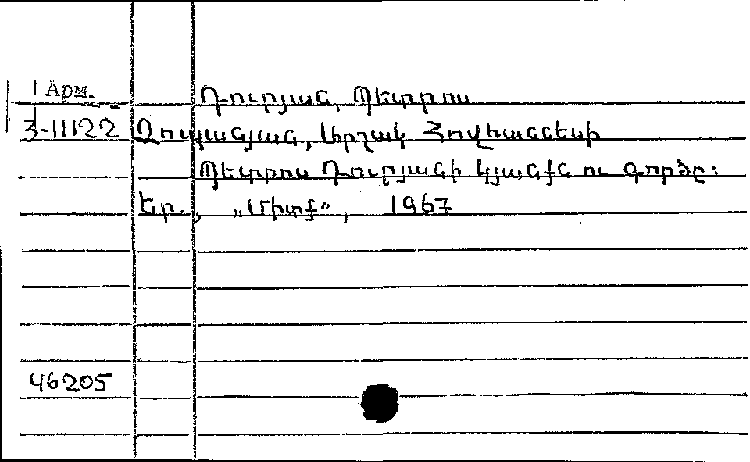 Арм. Դուրյան, Պետրոս
3-11122 Ղուկասյան, Արշակ Հովհաննեսի
Պետրոս Դուրյանի կյանքն ու գործը:
Եր., „Միտք“, 1967
46205